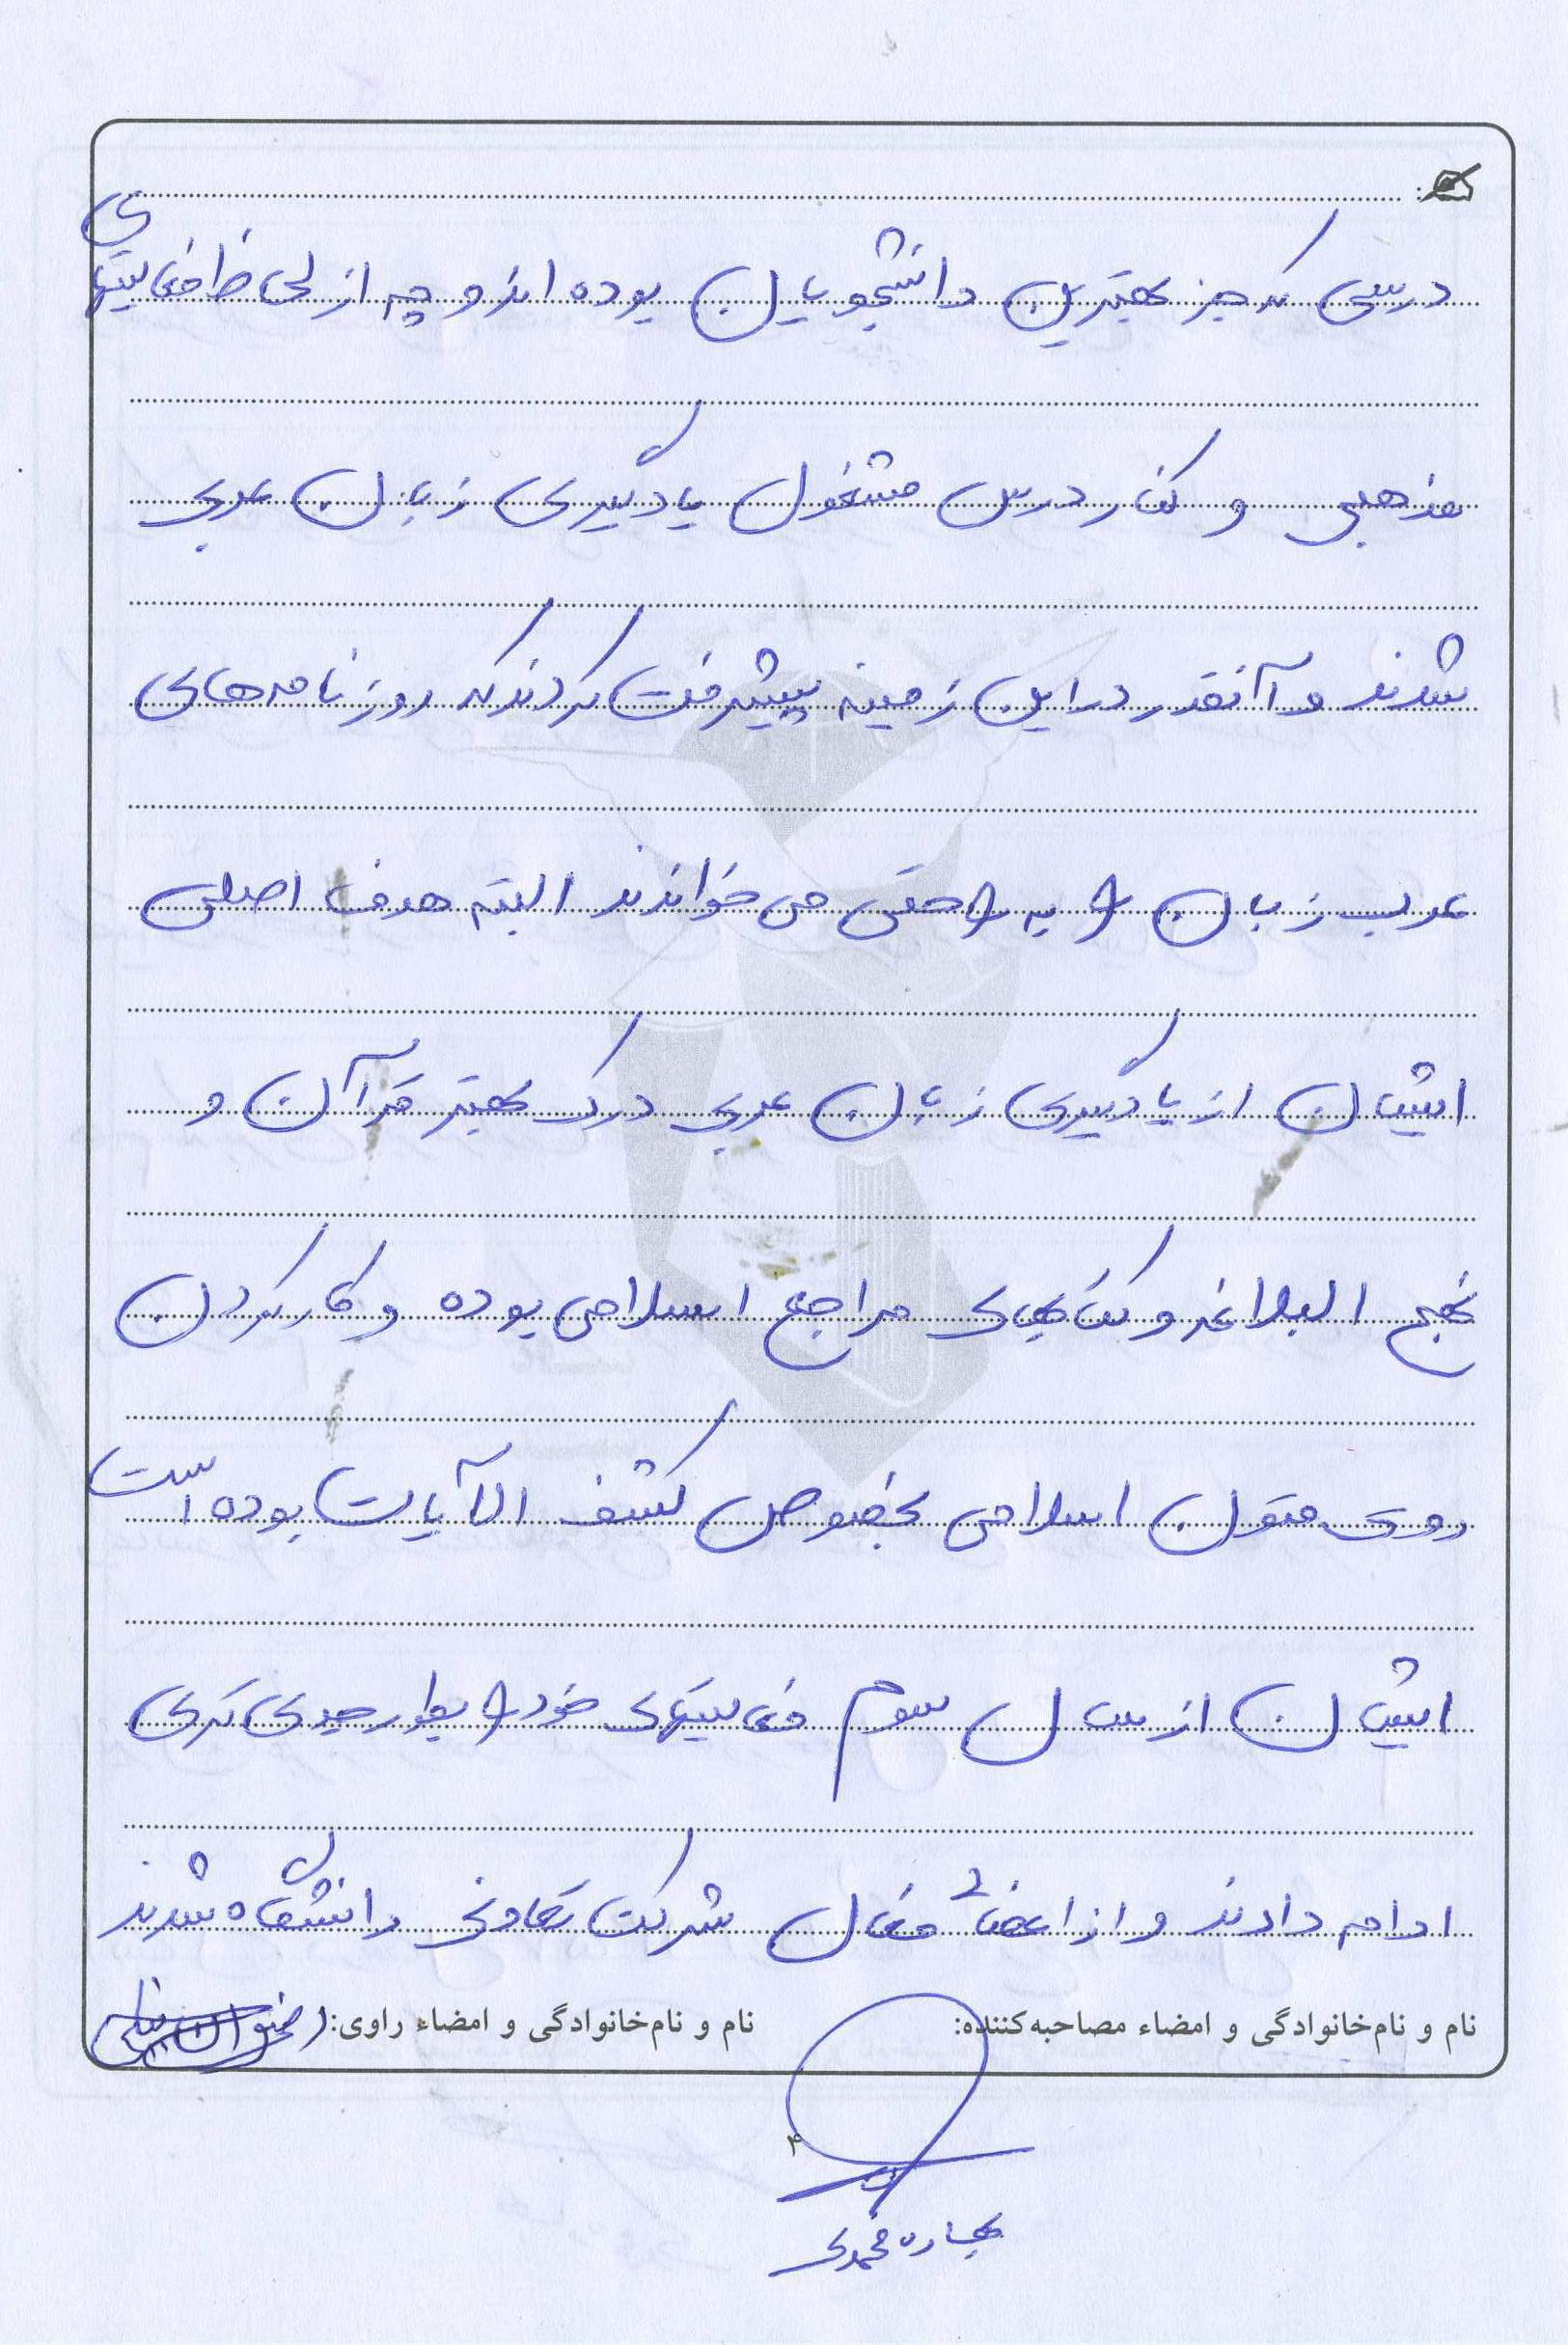 درسی که جز بهترین دانشجویان بوده اند و چه از لحاظ فعالیتهای
مذهبی و کنار درس مشغول یادگیری زبان عربی
شدند و آنقدر در این زمینه پیشرفت کردند که روزنامه‌های
عرب زبان را به راحتی می خواندند البته هدف اصلی
ایشان از یادگیری زبان عربی درک بهتر قرآن و
نهج البلاغه و کتابهای مراجع اسلامی بوده و کار کردن
روی متون اسلامی بخصوص کشف الآیات بوده است
ایشان از سال سوم فعالیتهای خود را بطور جدی تری
ادامه دادند و از اعضاء فعال شرکت تعاونی دانشگاه شدند
نام و نام‌خانوادگی و امضاء مصاحبه‌کننده:
نام و نام‌خانوادگی و امضاء راوی: رضوان
۴
بهاره محمدی